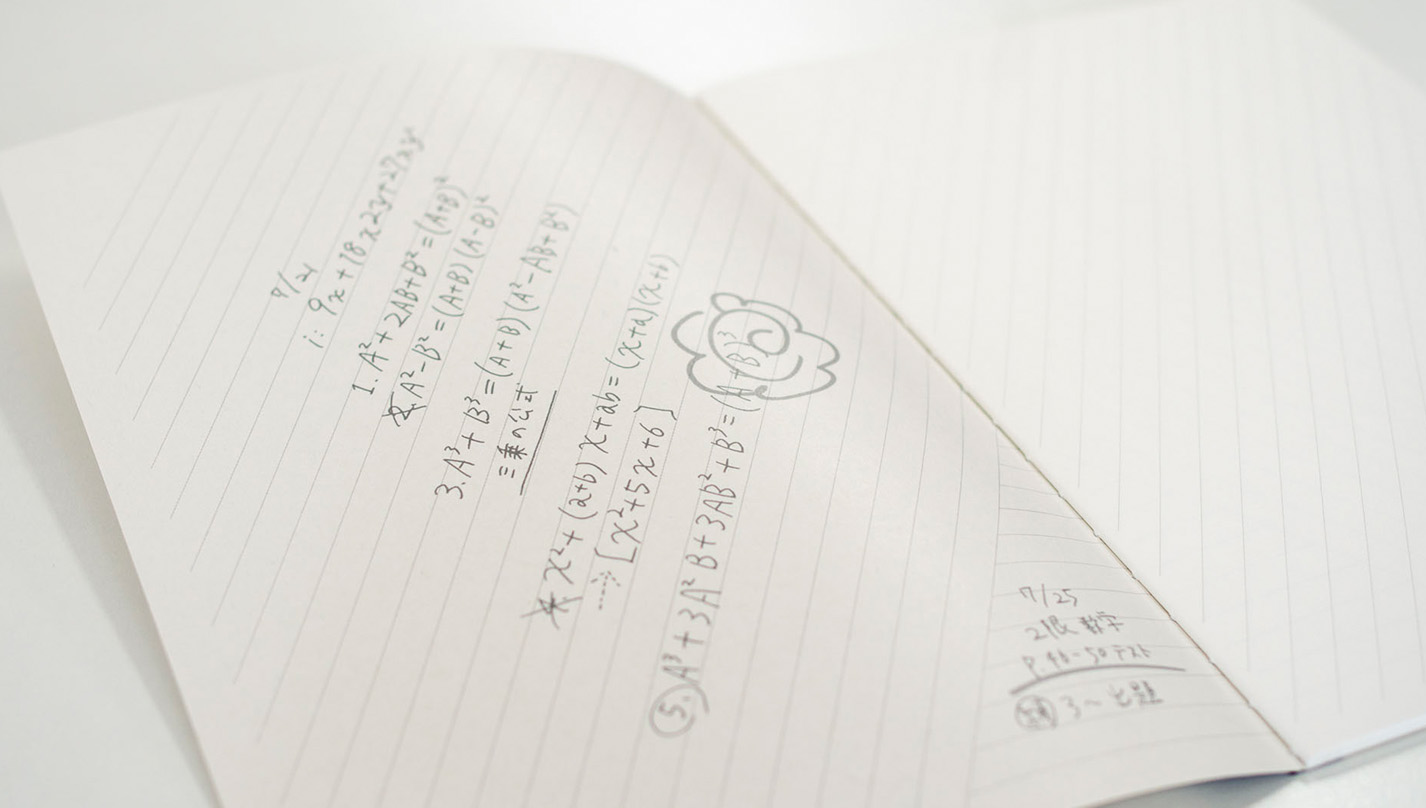 7/21
i: 9x+18x23y+27xy
1. A²+2AB+B²=(A+B)²
2. A²-B²=(A+B)(A-B)²
3. A³+B³=(A+B)(A²-AB+B²)
三乗の公式
x²+(a+b)x+ab=(x+a)(x+b)
→[x²+5x+6]
5. A³+3A²B+3AB²+B³=(A+B)³
7/25
2限 数学
P.46-50 テスト
3〜出題